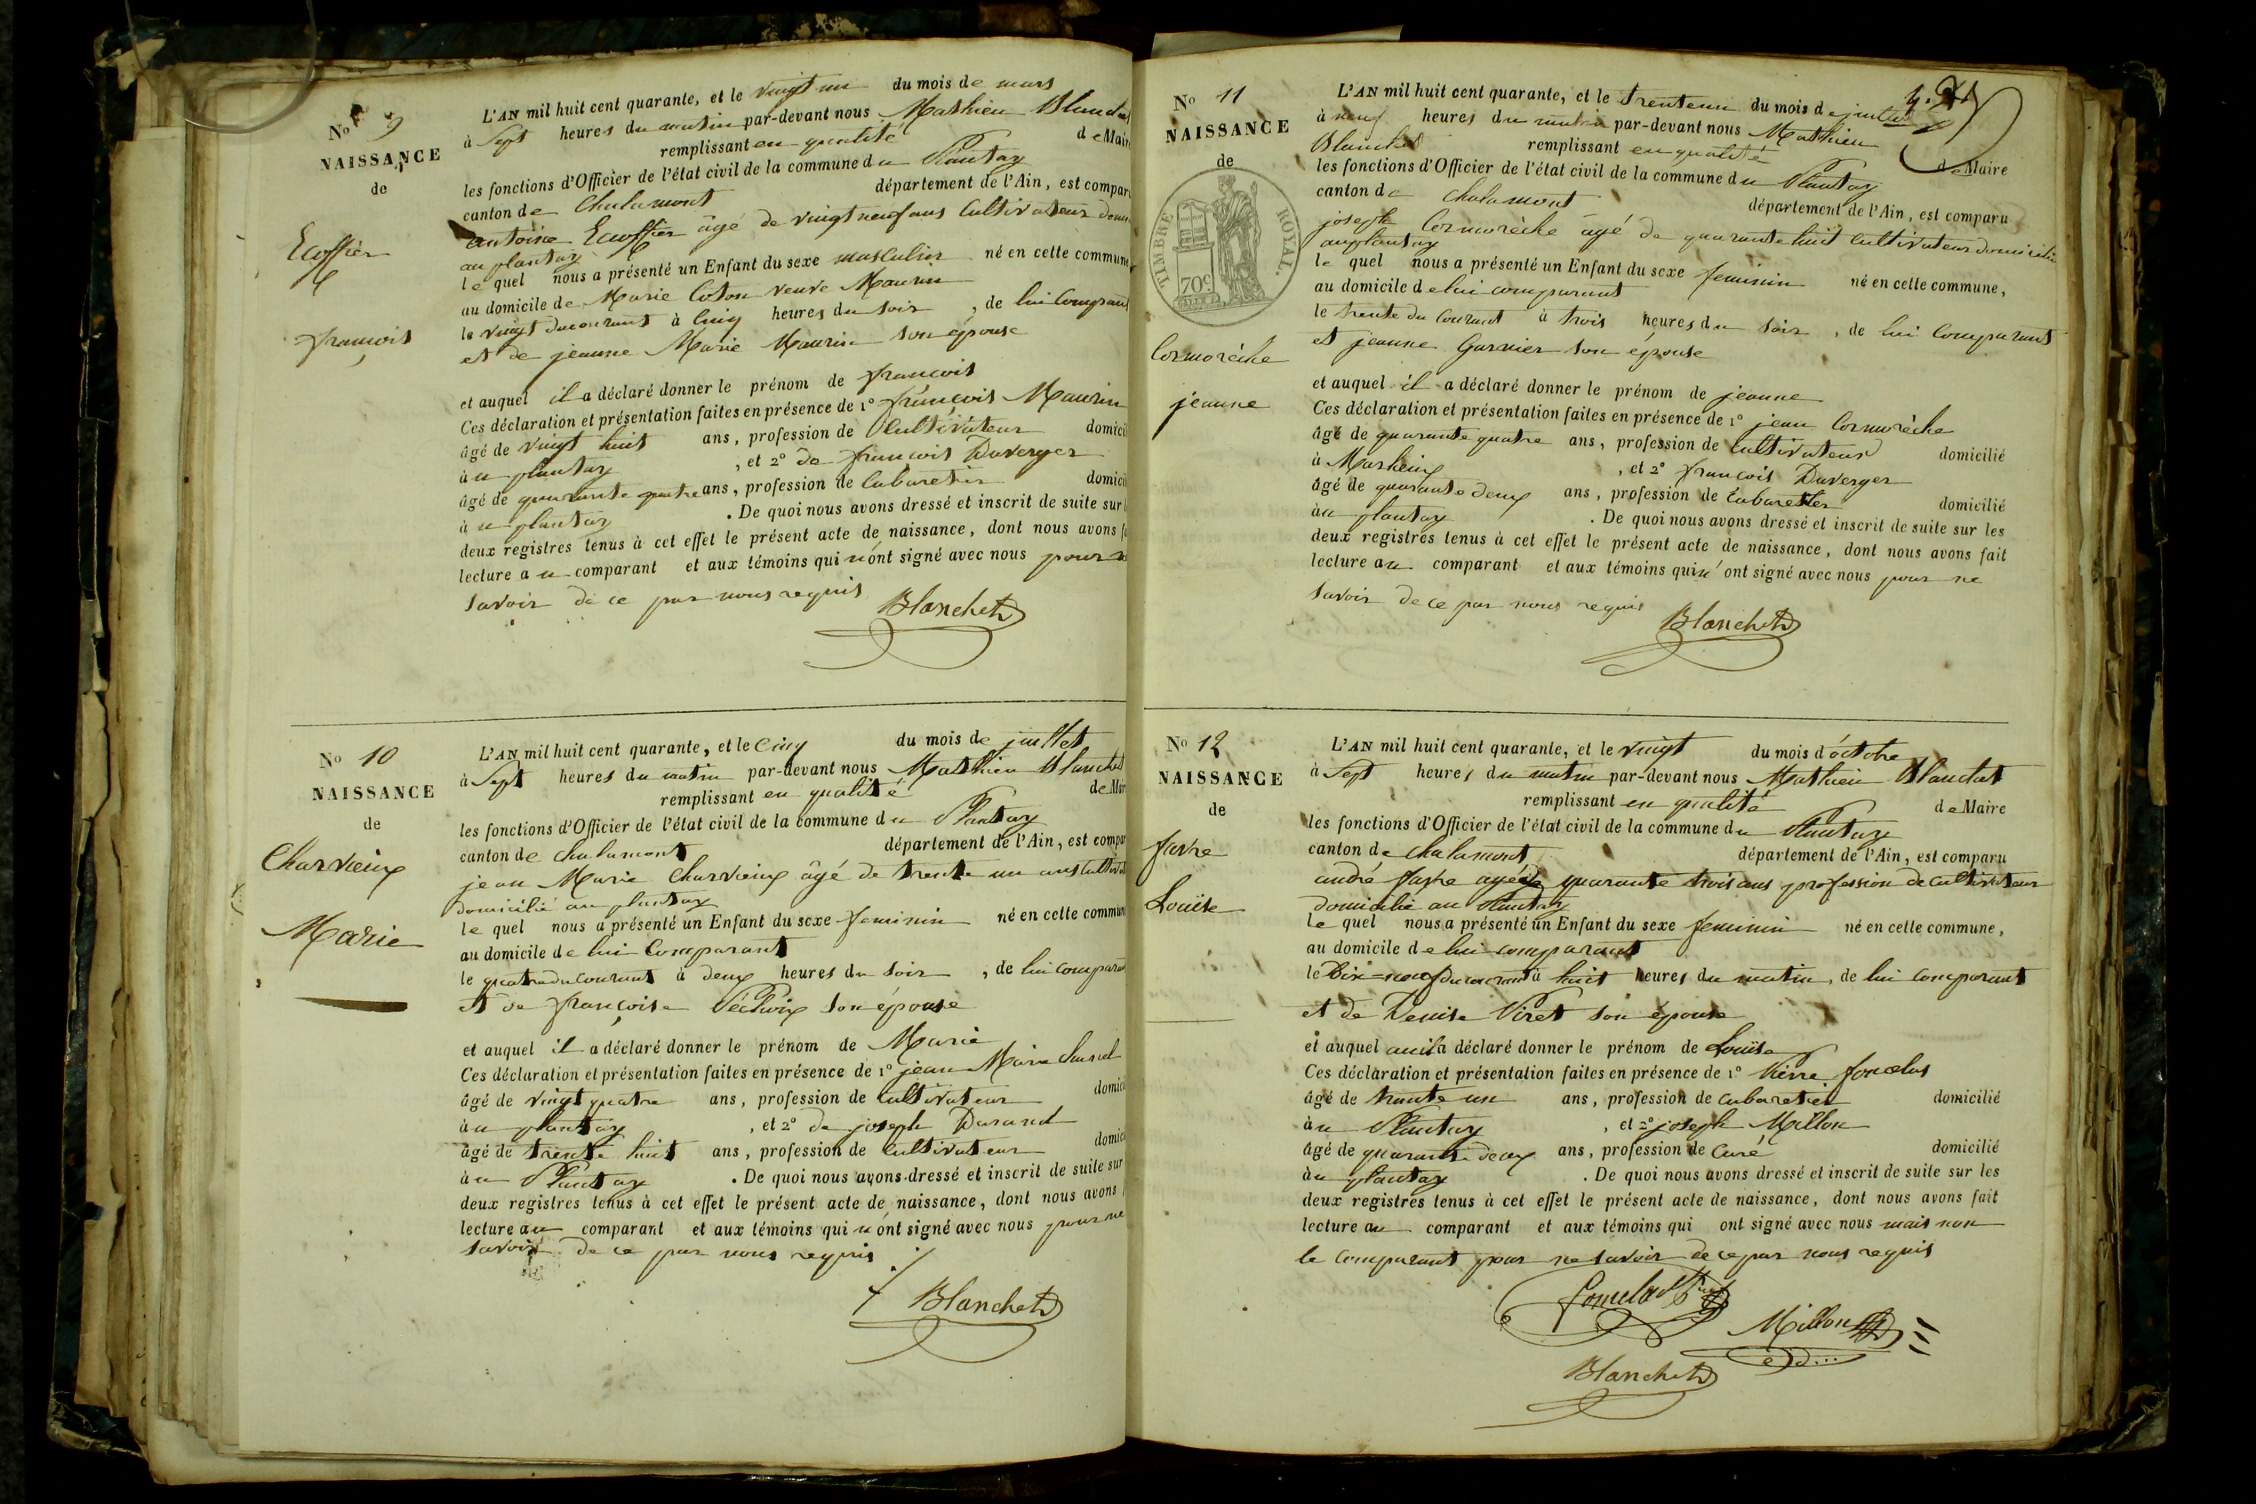 No 9
NAISSANCE
de
Ecoffier
françois
L'AN mil huit cent quarante, et le vingt un du mois de mars
à Sept heures du matin par-devant nous Mathieu Blanchet
remplissant en qualité de Maire
les fonctions d'Officier de l'état civil de la commune du Plantay
canton de Chalamont département de l'Ain, est comparu
antoine Ecoffier âgé de vingt neuf ans Cultivateur
au plantay
le quel nous a présenté un Enfant du sexe masculin né en cette commune
au domicile de Marie Coton veuve Maurin
le vingt du courant à Cinq heures du soir, de lui Comparant
et de jeanne Marie Maurin son épouse
et auquel il a déclaré donner le prénom de françois
Ces déclaration et présentation faites en présence de 1° françois Maurin
âgé de vingt huit ans, profession de Cultivateur domici
à u plantay, et 2° de françois Duverger
âgé de quarante quatre ans, profession de Cabaretier domici
à u plantay. De quoi nous avons dressé et inscrit de suite sur
deux registres tenus à cet effet le présent acte de naissance, dont nous avons
lecture a u comparant et aux témoins qui n'ont signé avec nous pour ne
savoir de ce par nous requis
Blanchet
No 10
NAISSANCE
de
Charvieux
Marie
L'AN mil huit cent quarante, et le Cinq du mois de juillet
à Sept heures du matin par-devant nous Mathieu Blanchet
remplissant en qualité de Mair
les fonctions d'Officier de l'état civil de la commune du Plantay
canton de chalamont département de l'Ain, est compar
jean Marie Charvieux âgé de trente un ans Cultivat
domicilié au plantay
le quel nous a présenté un Enfant du sexe feminin né en cette commun
au domicile de lui Comparant
le quatre du courant à deux heures du soir, de lui comparant
et de françoise son épouse
et auquel il a déclaré donner le prénom de Marie
Ces déclaration et présentation faites en présence de 1° jean Marie
âgé de vingt quatre ans, profession de Cultivateur domici
à u plantay, et 2° de joseph Durand
âgé de trente huit ans, profession de Cultivateur domici
à u Plantay. De quoi nous avons dressé et inscrit de suite sur
deux registres tenus à cet effet le présent acte de naissance, dont nous avons
lecture au comparant et aux témoins qui n'ont signé avec nous pour ne
savoir de ce par nous requis
Blanchet
No 11
NAISSANCE
de
TIMBRE ROYAL.
70c
Cormorèche
jeanne
L'AN mil huit cent quarante, et le trente un du mois de juillet
à neuf heures du matin par-devant nous Mathieu
Blanchet remplissant en qualité de Maire
les fonctions d'Officier de l'état civil de la commune du Plantay
canton de chalamont département de l'Ain, est comparu
joseph Cormorèche âgé de quarante huit Cultivateur domicilié
au plantay
le quel nous a présenté un Enfant du sexe feminin né en cette commune,
au domicile de lui comparant
le trente du Courant à trois heures du soir, de lui Comparant
et jeanne Garnier son épouse
et auquel il a déclaré donner le prénom de jeanne
Ces déclaration et présentation faites en présence de 1° jean Cormorèche
âgé de quarante quatre ans, profession de Cultivateur domicilié
à Marlieux, et 2° françois Duverger
âgé de quarante deux ans, profession de Cabaretier domicilié
à u plantay. De quoi nous avons dressé et inscrit de suite sur les
deux registres tenus à cet effet le présent acte de naissance, dont nous avons fait
lecture au comparant et aux témoins qui n'ont signé avec nous pour ne
savoir de ce par nous requis
Blanchet
No 12
NAISSANCE
de
favre
Louise
L'AN mil huit cent quarante, et le vingt du mois d'octobre
à Sept heures du matin par-devant nous Mathieu Blanchet
remplissant en qualité de Maire
les fonctions d'Officier de l'état civil de la commune du Plantay
canton de chalamont département de l'Ain, est comparu
andré favre agé de quarante trois ans profession de cultivateur
domicilié au Plantay
le quel nous a présenté un Enfant du sexe feminin né en cette commune,
au domicile de lui comparant
le Dix-neuf du courant à huit heures du matin, de lui comparant
et de Denise Viret son épouse
et auquel a déclaré donner le prénom de Louise
Ces déclaration et présentation faites en présence de 1° Pierre
âgé de trente un ans, profession de cabaretier domicilié
à u Plantay, et 2° joseph Millon
âgé de quarante deux ans, profession de Curé domicilié
à u plantay. De quoi nous avons dressé et inscrit de suite sur les
deux registres tenus à cet effet le présent acte de naissance, dont nous avons fait
lecture au comparant et aux témoins qui ont signé avec nous mais non
le comparant pour ne savoir de ce par nous requis
Millon
Blanchet